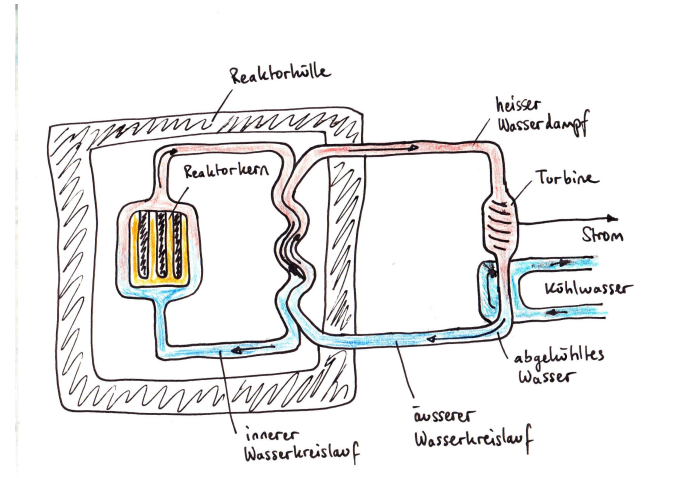 Reaktorhülle
heisser
Wasserdampf
Reaktorkern
Turbine
Strom
Kühlwasser
abgekühltes
Wasser
äusserer
Wasserkreislauf
innerer
Wasserkreislauf